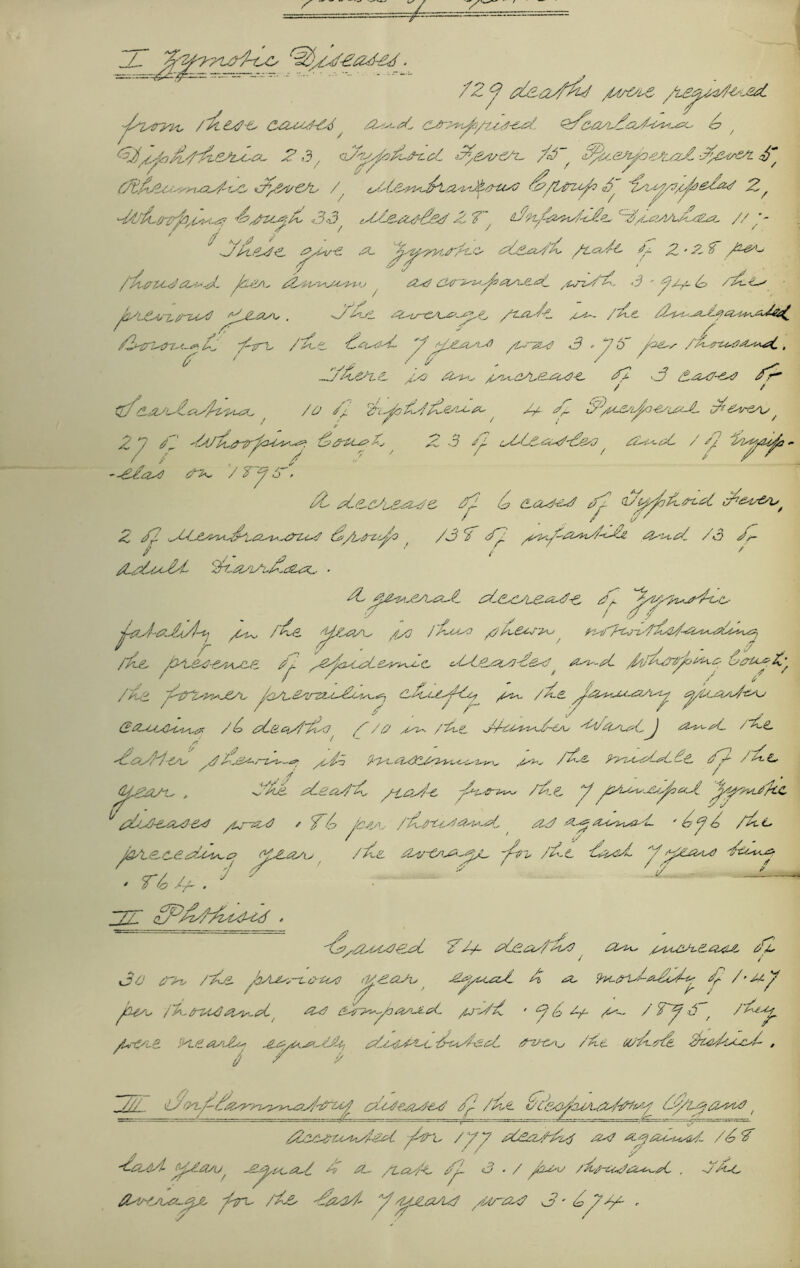 I Zymotic Diseases.
129 deaths were registered
from these causes, and comprised Scarlatina 6,
Diphtheria 23, Typhoid Fever 15, Puerperal Fever 5,
Rheumatic Fever 1, Membranous Croup 5, Erysipelas 2,
Whooping Cough 33, Measles 28, Infantile Diarrhœa 11.-
These give a Zymotic death rate of 2.28 per
thousand per Annum, as compared with 3.946 the
previous year. The average rate in the Amalgamated
Borough for the last 7 years was 3.75 per thousand.
There is an increase of 3 cases of
Scarlatina, 10 of Diphtheria, 4 of Puerperal Fever,
27 of Whooping Cough, 23 of Measles, and 1 of Erysip-
-elas on 1895.
A decrease of 6 cases of Typhoid Fever,
2 of Membranous Croup, 138 of infantile and 13 of
Adult Diarrhœa.
A general decrease of Zymotic
fatality in the Year is thus shewn, notwithstanding
the presence of epidemic Measles, and Whooping Cough;
the former prevailing chiefly in the January quarter
causing 16 deaths, (10 in the Hunslet Ward) and the
latter shewing its maximum in the middle of the
Year. The death rate from the 7 principal Zymotic
diseases was 1.86 per thousand, as against .676 the
preceding year, the average for the last 7 years being
.864.
II Phthisis.
Caused 84 deaths, an increase of
30 on the previous year, equal to a mortality of 1.47
per thousand, as compared with .964 in 1895, they
were nearly equally distributed over the whole District.
III Inflammatory diseases of the Respiratory Organs,
Accounted for 177 deaths as against 168
last year, equal to a rate of 3.1 per thousand. The
Average for the last 7 years was 3.674.